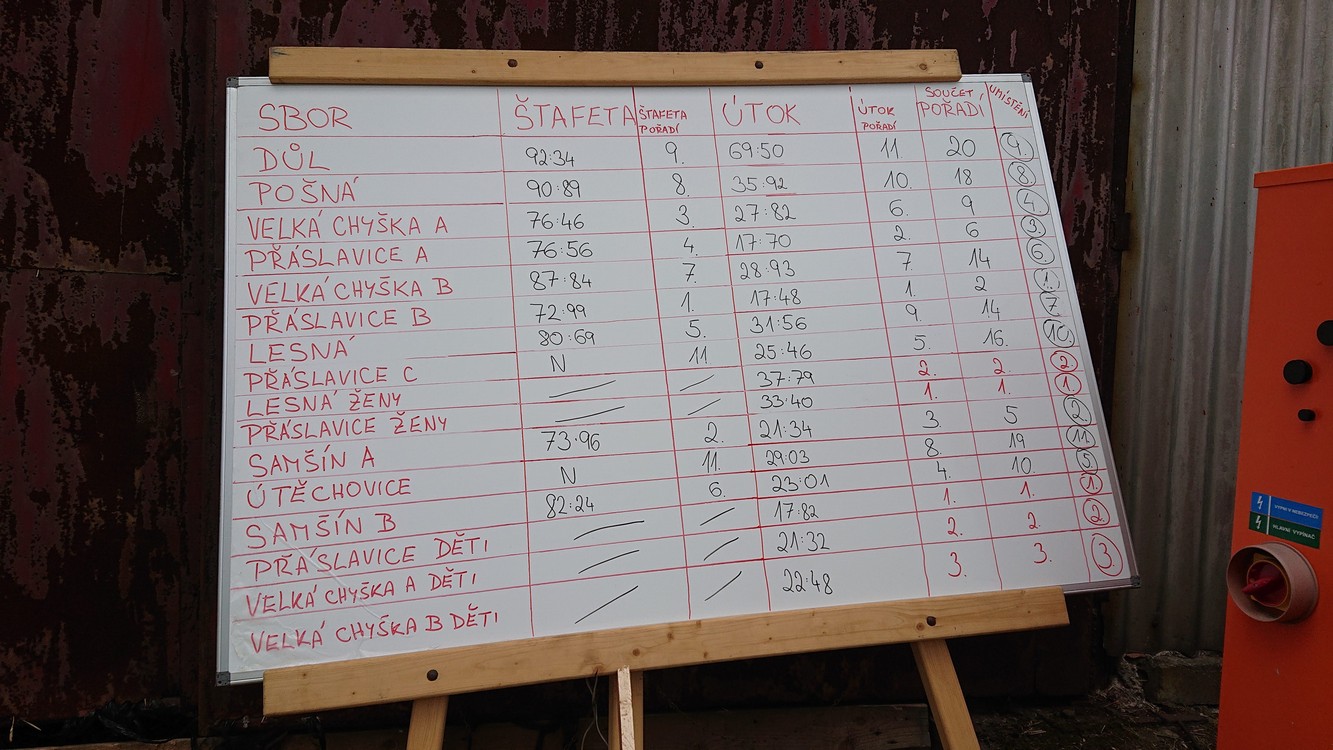 SBOR ŠTAFETA ŠTAFETA POŘADÍ ÚTOK ÚTOK POŘADÍ SOUČET POŘADÍ UMÍSTĚNÍ
DŮL 92:34 9. 69:50 11. 20 9.
POŠNÁ 90:89 8. 35:92 10. 18 8.
VELKÁ CHYŠKA A 76:46 3. 27:82 6. 9 4.
PŘÁSLAVICE A 76:56 4. 17:70 2. 6 3.
VELKÁ CHYŠKA B 87:84 7. 28:93 7. 14 6.
PŘÁSLAVICE B 72:99 1. 17:48 1. 2 1.
LESNÁ 80:69 5. 31:56 9. 14 7.
PŘÁSLAVICE C N 11 25:46 5. 16. 10.
LESNÁ ŽENY 37:79 2. 2. 2.
PŘÁSLAVICE ŽENY 33:40 1. 1. 1.
SAMŠÍN A 73:96 2. 21:34 3. 5 2.
ÚTĚCHOVICE N 11. 29:03 8. 19 11.
SAMŠÍN B 82:24 6. 23:01 4. 10. 5.
PŘÁSLAVICE DĚTI 17:82 1. 1. 1.
VELKÁ CHYŠKA A DĚTI 21:32 2. 2. 2.
VELKÁ CHYŠKA B DĚTI 22:48 3. 3. 3.
VYPNI V NEBEZPEČÍ
HLAVNÍ VYPÍNAČ